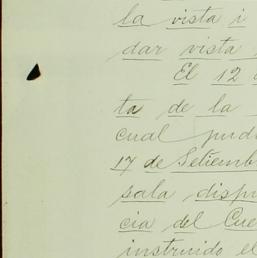 la vista i
dar vista
El 12
ta de la
cual pud
17 de Setiemb
sala dispu
cia del Cue
instruido el